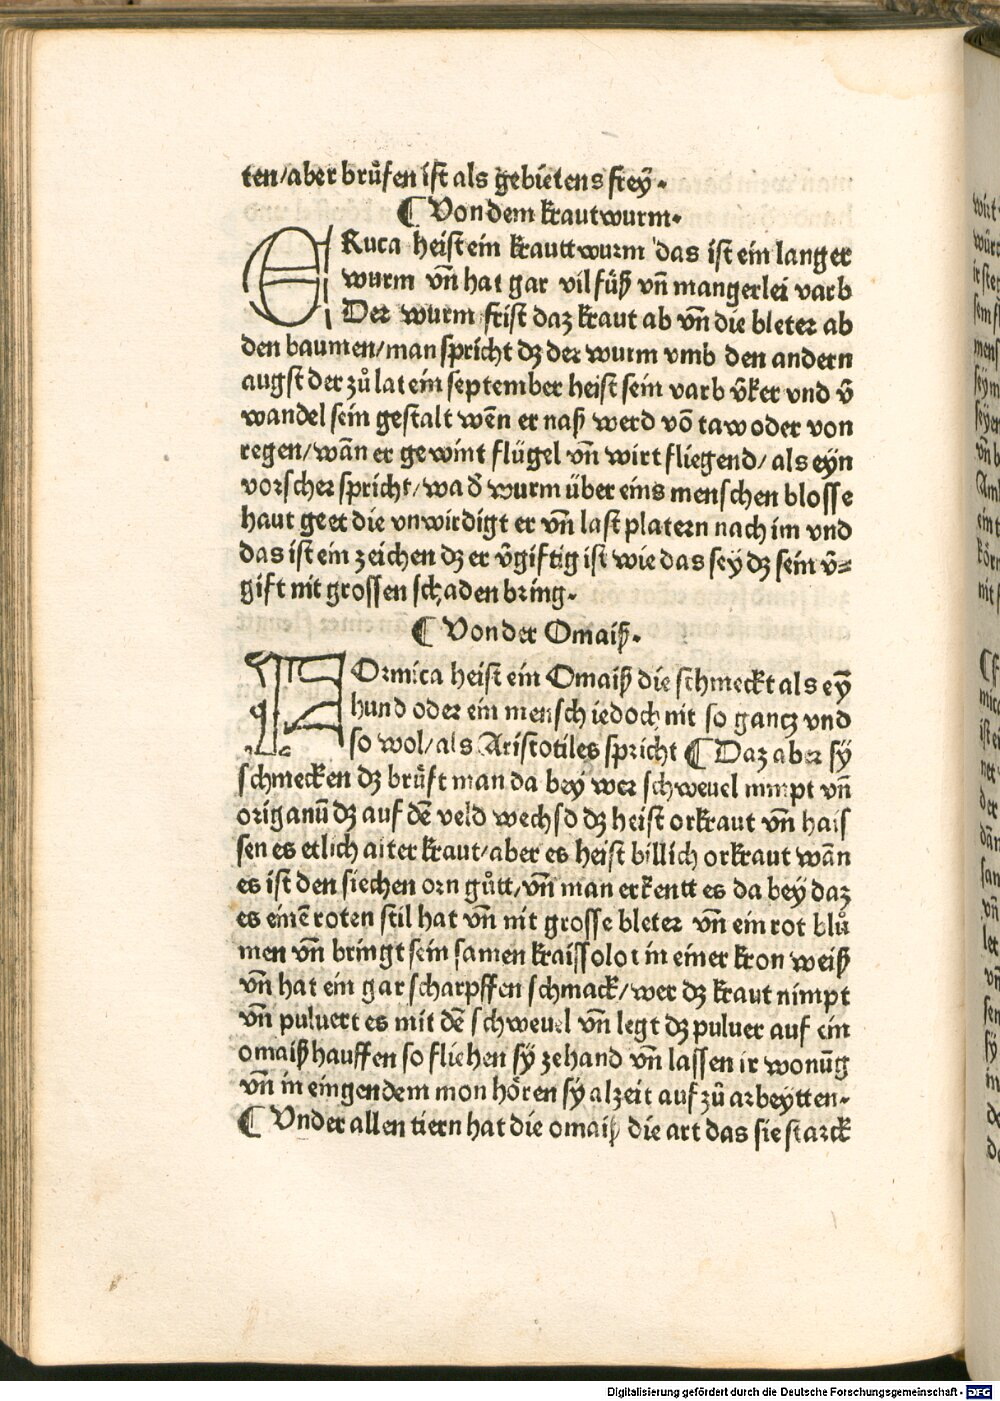 ten/aber brůfen ist als gebietens freÿ.
¶ Von dem krautwurm.
ERuca heist ein krauttwurm das ist ein langer
wurm vn̄ hat gar vil füß vn̄ mangerlei varb
Der wurm frist daz kraut ab vn̄ die bleter ab
den baumen/man spricht dz der wurm vmb den andern
augst der zů latein september heist sein varb v̄ker vnd v̄
wandel sein gestalt wen̄ er naß werd vō taw oder von
regen/wān er gewint flügel vn̄ wirt fliegend/als eÿn
vorscher spricht/wa d̄ wurm über eins menschen blosse
haut geet die vnwirdigt er vn̄ last platern nach im vnd
das ist ein zeichen dz er v̄giftig ist wie das seÿ dz sein v̄=
gift nit grossen schaden bring.
¶ Von der Omaiß.
FOrmica heist ein Omaiß die schmeckt als eÿ
hund oder ein mensch iedoch nit so gancz vnd
so wol/als Aristotiles spricht ¶ Daz aber sÿ
schmecken dz brůft man da beÿ wer schweuel nimpt vn̄
origanū dz auf dē veld wechsd dz heist orkraut vn̄ hais
sen es etlich aiter kraut/aber es heist billich orkraut wān
es ist den siechen orn gůtt/vn̄ man erkentt es da beÿ daz
es einē roten stil hat vn̄ nit grosse bleter vn̄ ein rot blů
men vn̄ bringt sein samen kraissolot in einer kron weiß
vn̄ hat ein gar scharpffen schmack/wer dz kraut nimpt
vn̄ puluert es mit dē schweuel vn̄ legt dz puluer auf ein
omaißhauffen so fliehen sÿ zehand vn̄ lassen ir wonūg
vn̄ in eingendem mon hören sÿ alzeit auf zů arbeÿtten.
¶ Vnder allen tiern hat die omaiß die art das sie starck
Digitalisierung gefördert durch die Deutsche Forschungsgemeinschaft - DFG